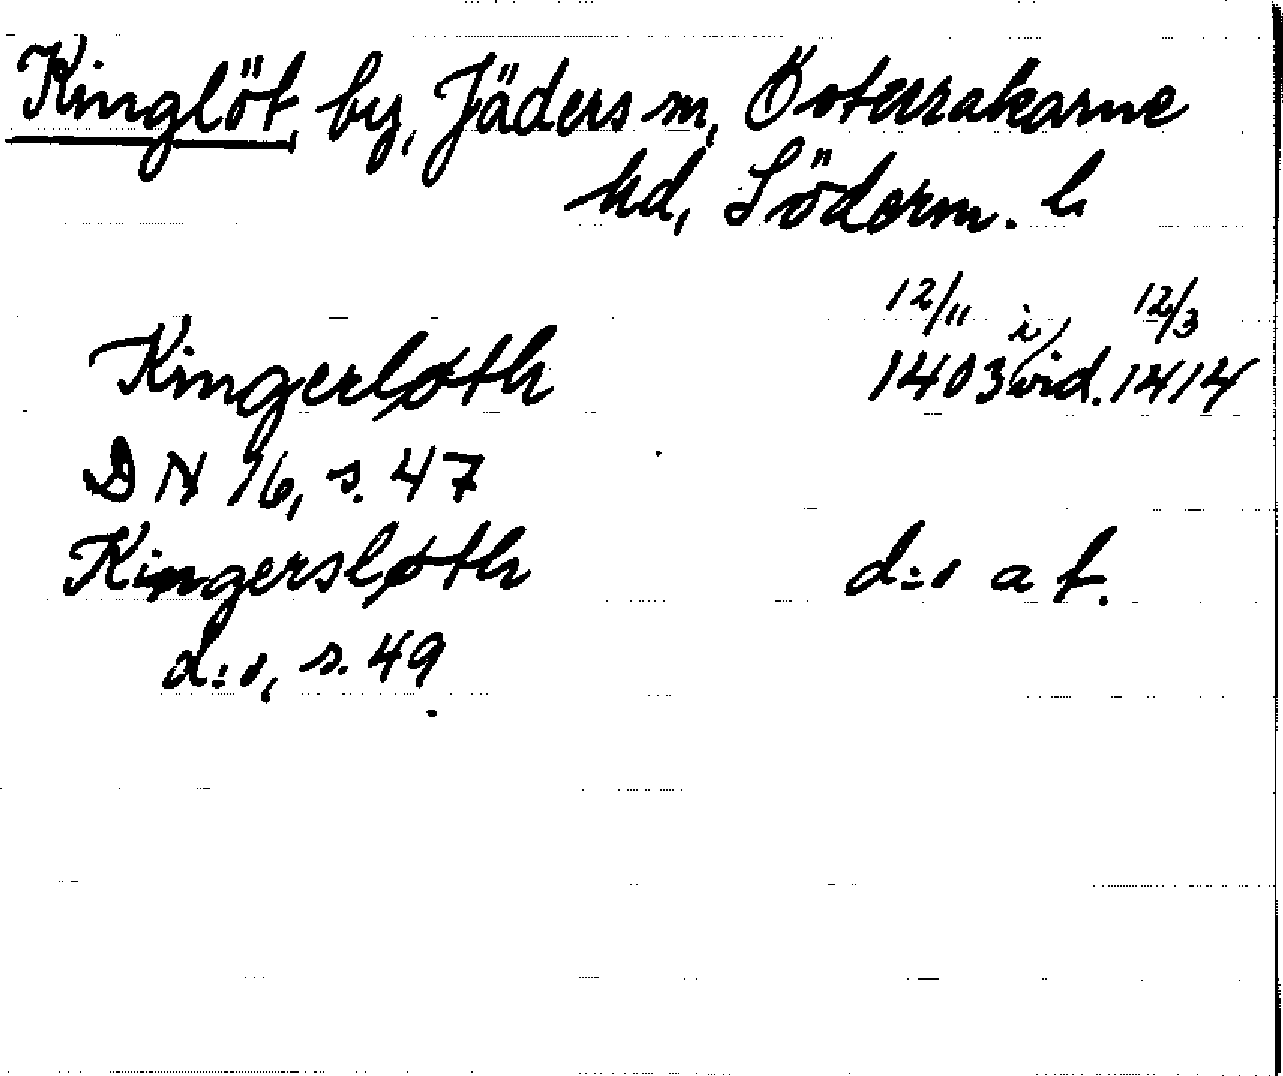 Kinglöt, by, Jäders sn, Österrekarne
hd, Söderm. l.
Kingerløth 12/11 1403 i vid. 12/3 1414
DN 16, s. 47
Kingersløth d:o a t.
d:o, s. 49